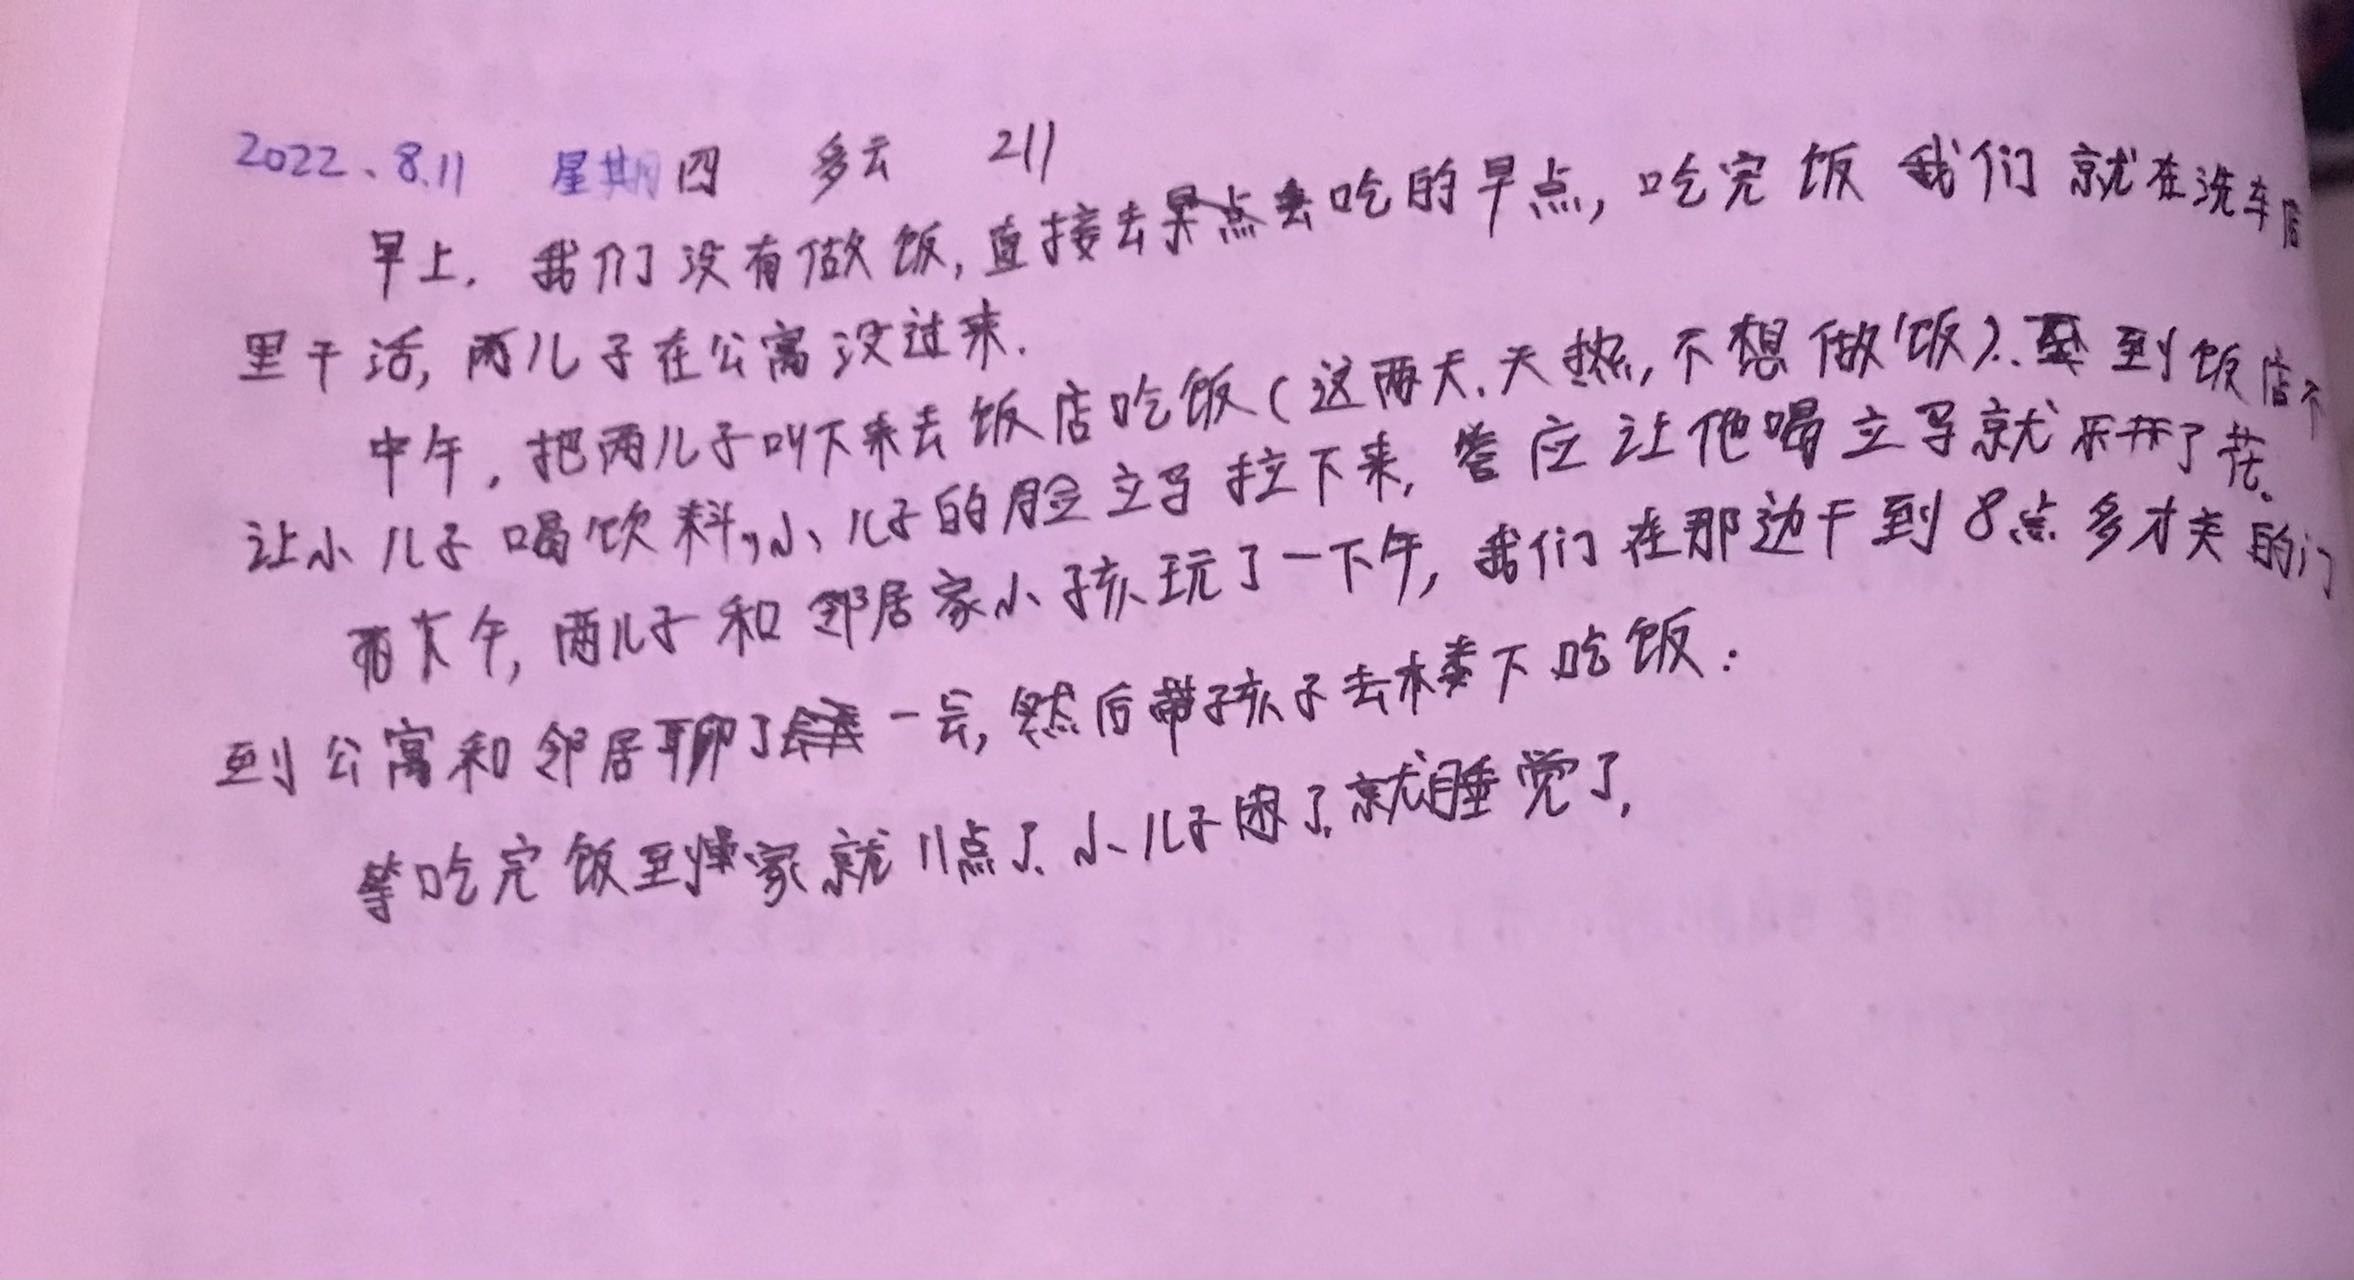 2022、8.11 星期四 多云 211
早上，我们没有做饭，直接去早点去吃的早点，吃完饭我们就在洗车店
里干活，两儿子在公寓没过来．
中午，把两儿子叫下来去饭店吃饭（这两天．天热，不想做饭）．到饭店不
让小儿子喝饮料，小儿子的脸立马拉下来，答应让他喝立马就乐开了花。
下午，两儿子和邻居家小孩玩了一下午，我们在那边干到8点多才关的门
到公寓和邻居聊了一会，然后带孩子去楼下吃饭．
等吃完饭到家就11点了．小儿子困了．就睡觉了．